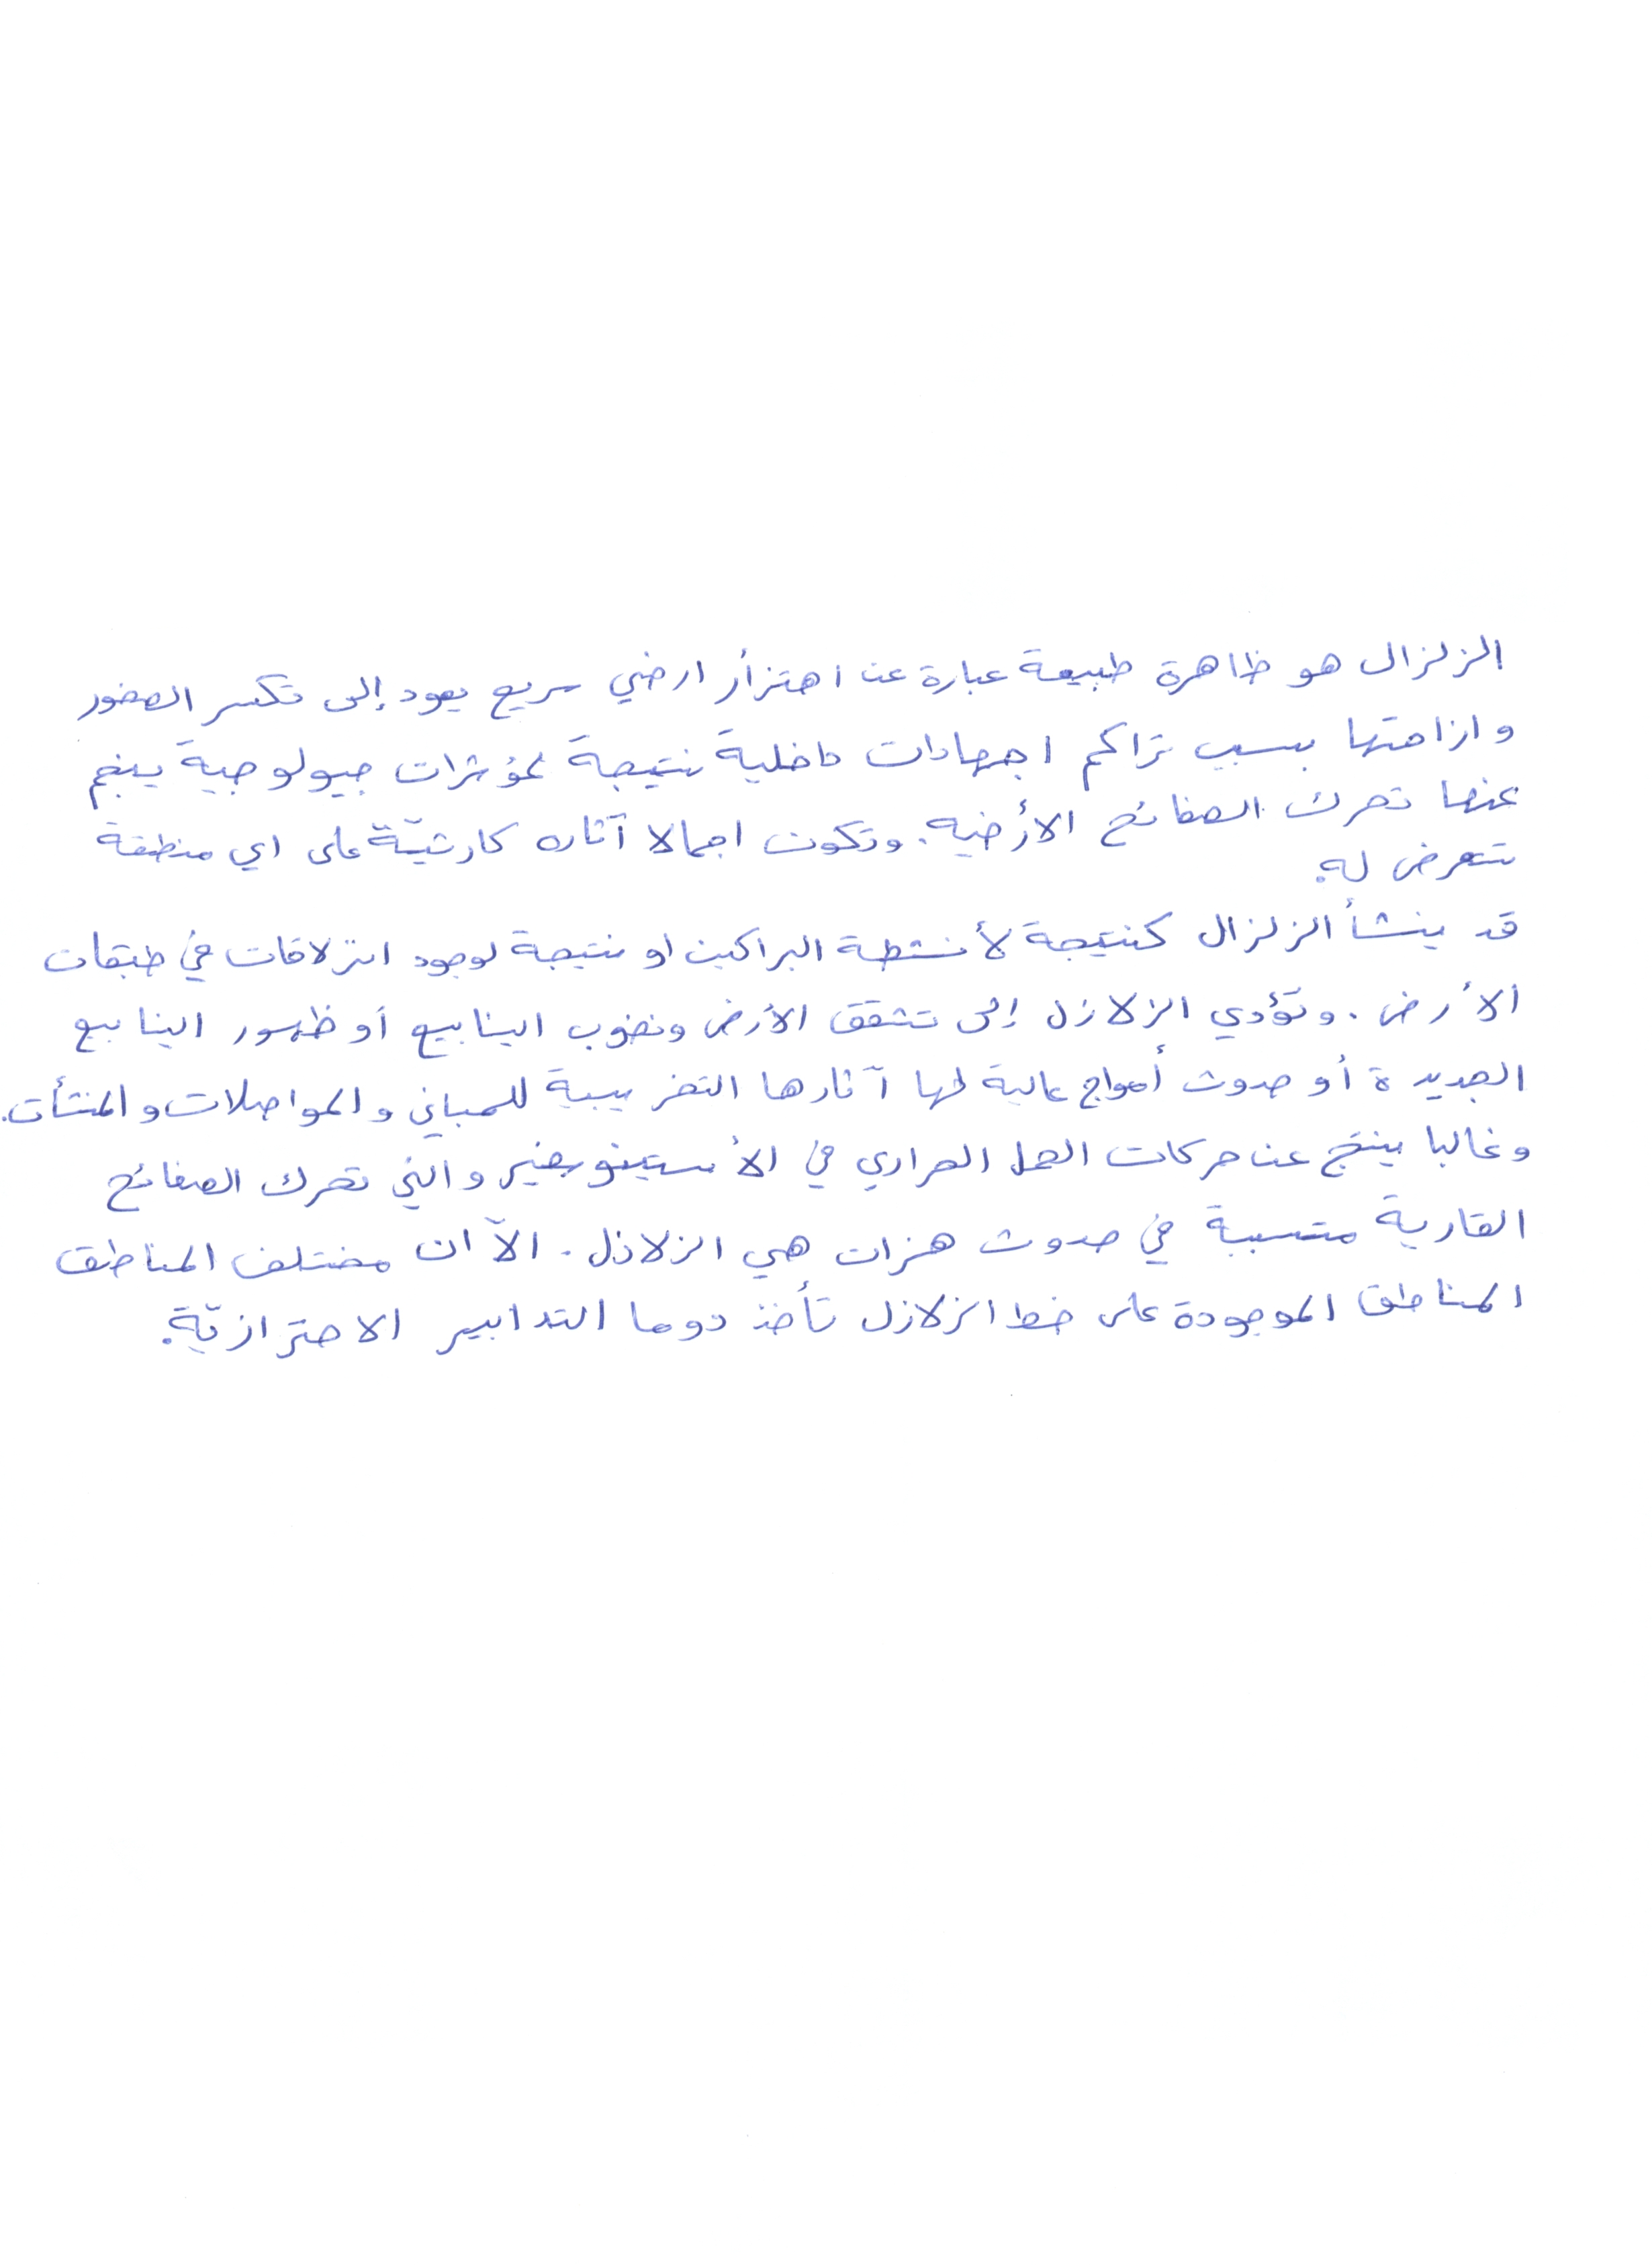 الزلزال هو ظاهرة طبيعة عبارة عن اهتزأز ارضي سريع يعود إلى تكسر الصخور
وازاحتها بسبب تراكم اجهادات داخلية نتيجة لمؤثرات جيولوجية ينجم
عنها تحرك الصفائح الأرضيه. وتكون اجمالا آثاره كارثيّة على اي منطقة
تتعرض له.
قد ينشأ الزلزال كنتيجة لأنشطة البراكين او نتيجة لوجود انزلاقات في طبقات
الأرض. وتؤدي الزلازل إلى تشقق الأرض ونضوب الينابيع أو ظهور الينابيع
الجديدة أو حدوث أمواج عالية لها آثارها التخريبية للمباني والمواصلات والمنشأت.
وغالبا ينتج عن حركات الحمل الحراري في الأستينوسفير والتي تحرك الصفائح
القارية متسببة في حدوث هزات هي الزلازل. الآ ان مختلف المناطق
المناطق الموجودة على خط الزلازل تأخذ دوما التدابير الاحترازيّة.